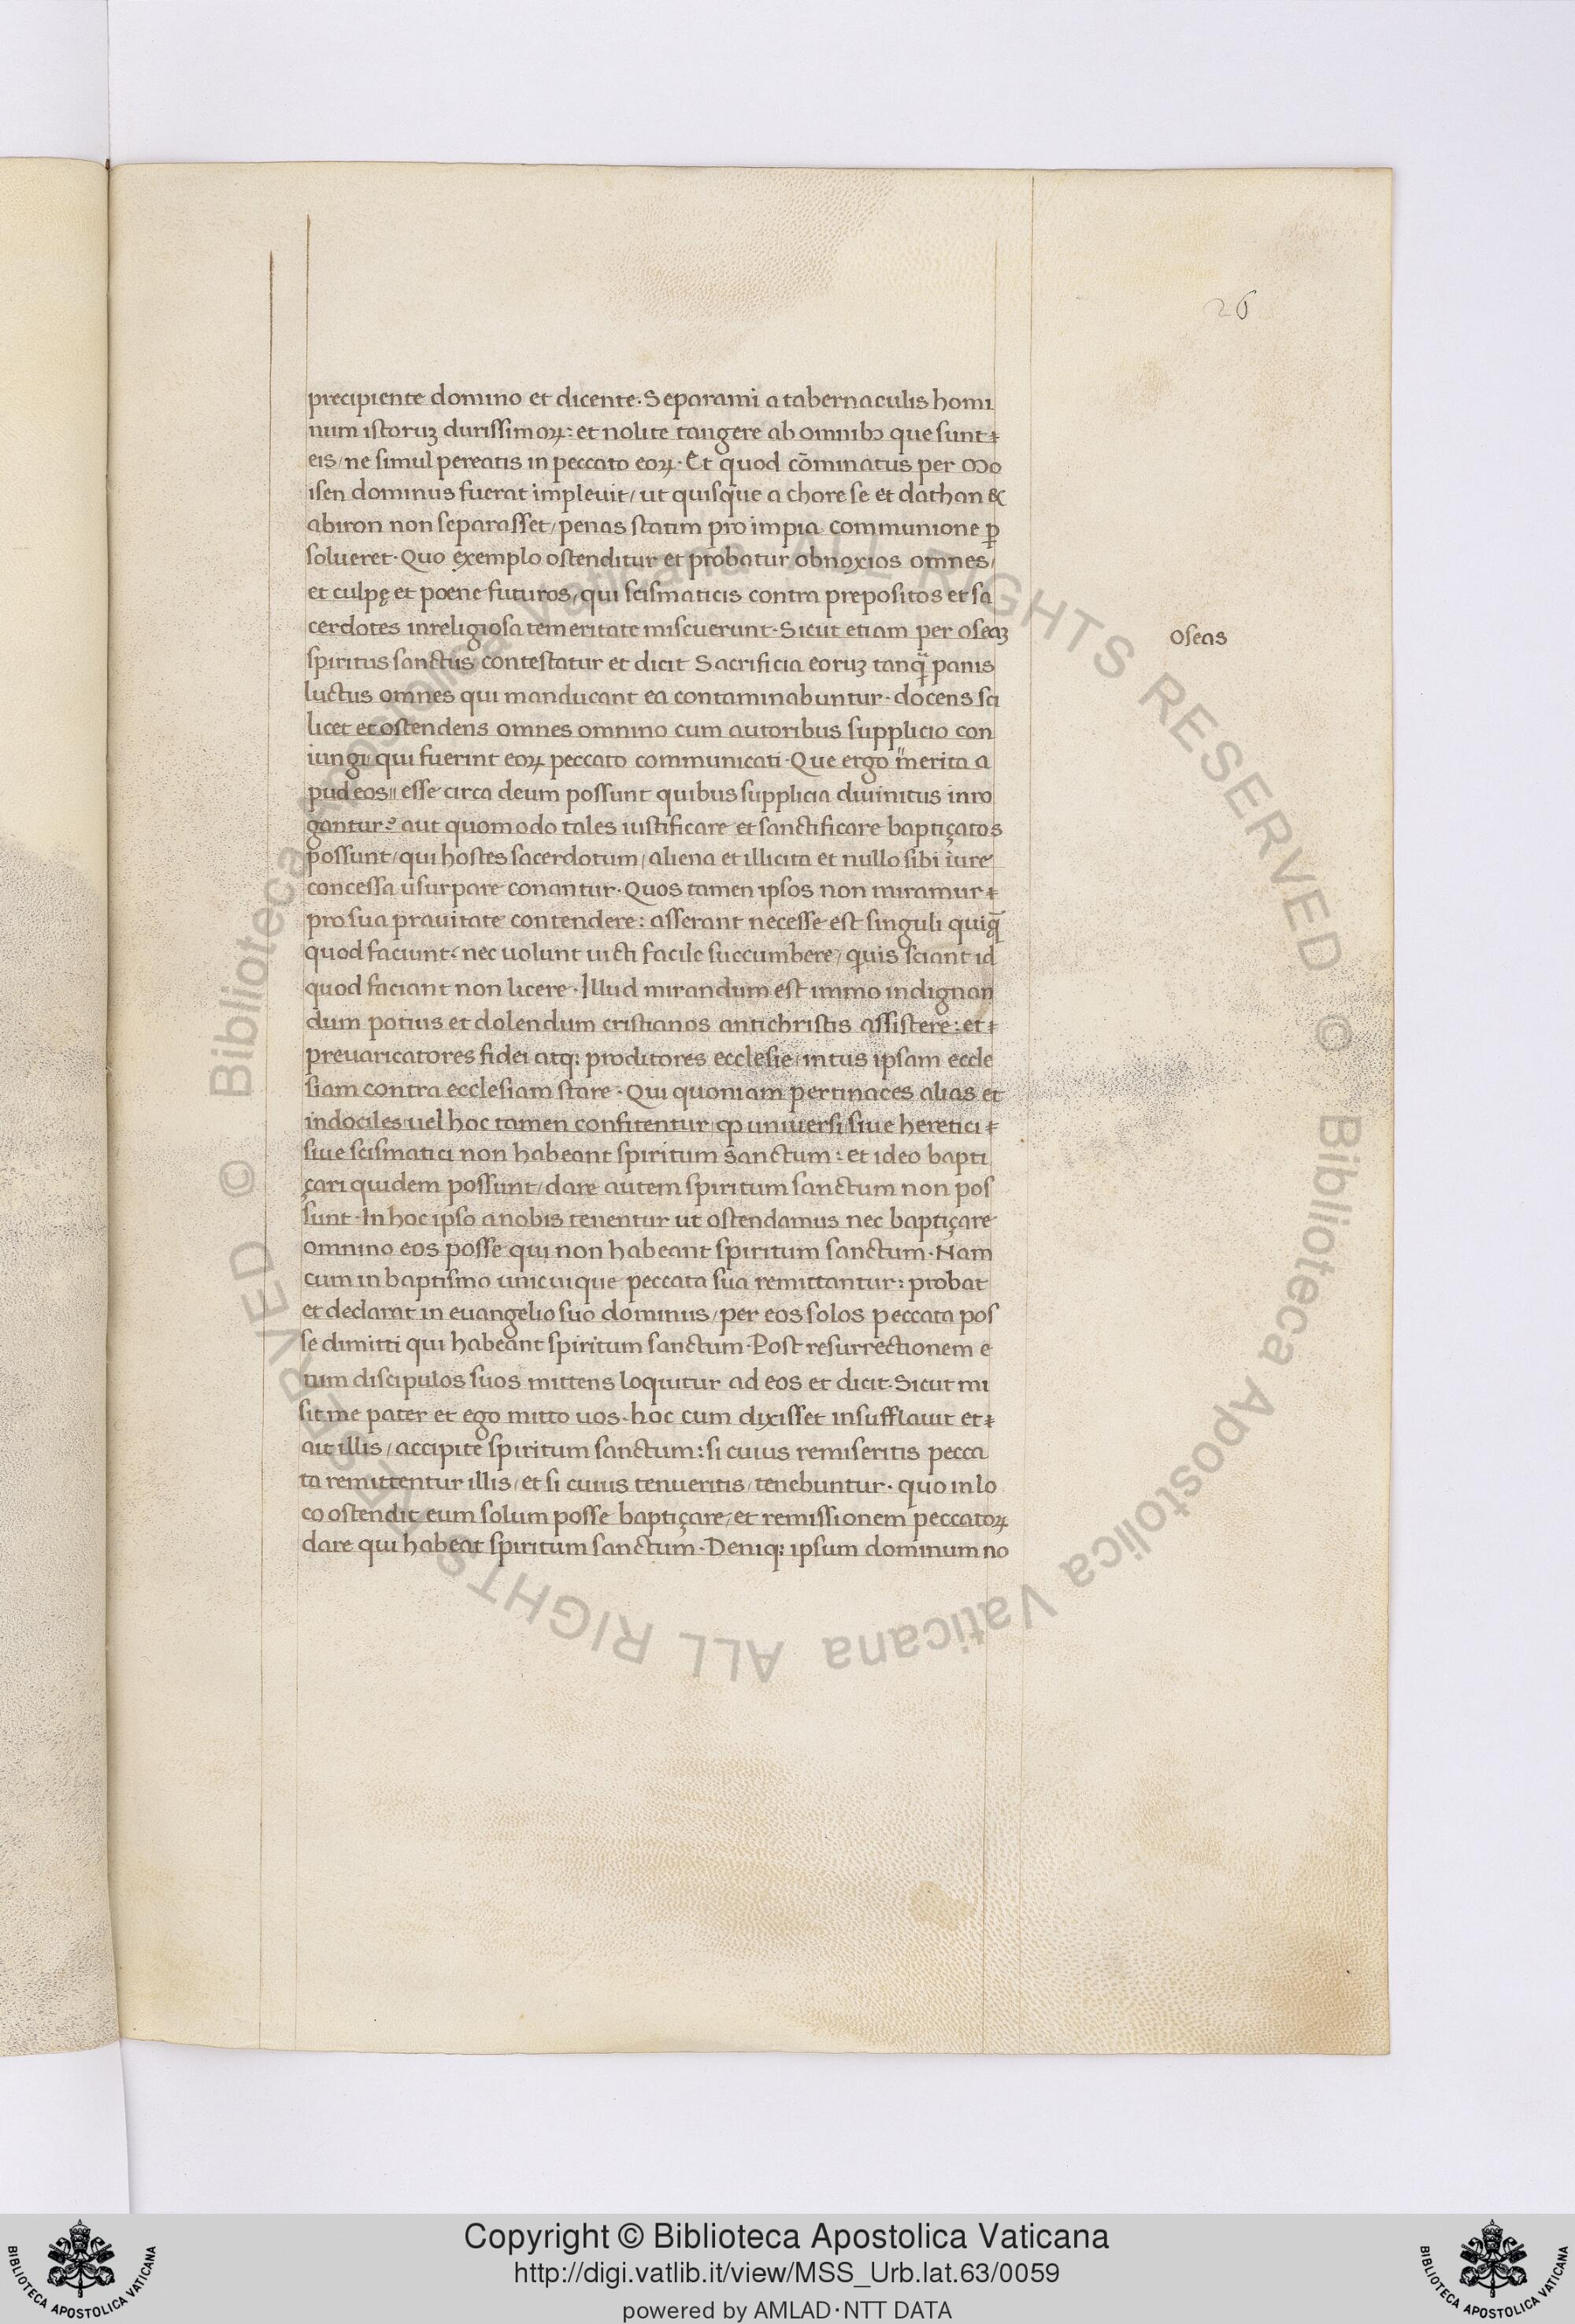 26
precipiente domino et dicente. Separamī a tabernaculis homi
num istoruꝫ durissimoꝝ: et nolite tangere ab omnibꝫ que sunt
eis/ ne simul pereatis in peccato eoꝝ. Et quod cōminatus per Mo
isen dominus fuerat impleuit/ ut quisque a chore se et dathan &
abiron non separasset/ penas statim pro impia communione ꝑ
solueret. Quo exemplo ostenditur et probatur obnoxios omnes/
et culpę et poene futuros/ qui scismaticis contra prepositos et sa
cerdotes inreligiosa temeritate miscuerunt. Sicut etiam per oseaꝫ
Oseas
spiritus sanctus contestatur et dicit Sacrificia eoruꝫ tanq̄ panis
luctus omnes qui manducant ea contaminabuntur. docens sci
licet et ostendens omnes omnino cum autoribus supplicio con
iungi/ qui fuerint eoꝝ peccato communicati. Que ergo "merita a
pud eos" esse circa deum possunt quibus supplicia diuinitus inro
gantur? aut quomodo tales iustificare et sanctificare baptiçatos
possunt/ qui hostes sacerdotum/ aliena et illicita et nullo sibi iure
concessa usurpare conantur. Quos tamen ipsos non miramur
pro sua prauitate contendere: asserant necesse est singuli quiq̄
quod faciunt: nec uolunt uicti facile succumbere/ q̄uis sciant id
quod faciant non licere. Illud mirandum est immo indignan
dum potius et dolendum cristianos antichristis assistere: et
preuaricatores fidei atq: proditores ecclesie/ intus ipsam eccle
siam contra ecclesiam stare. Qui quoniam pertinaces alias et
indociles uel hoc tamen confitentur/ ꝙ uniuersi siue heretici
siue scismatici non habeant spiritum sanctum: et ideo bapti
çari quidem possunt/ dare autem spiritum sanctum non pos
sunt. In hoc ipso a nobis tenentur ut ostendamus nec baptiçare
omnino eos posse qui non habeant spiritum sanctum. Nam
cum in baptismo unicuique peccata sua remittantur: probat
et declarat in euangelio suo dominus/ per eos solos peccata pos
se dimitti qui habeant spiritum sanctum. Post resurrectionem e
nim discipulos suos mittens loquitur ad eos et dicit. Sicut mi
sit me pater et ego mitto uos. hoc cum dixisset insufflauit et
ait illis/ accipite spiritum sanctum: si cuius remiseritis pecca
ta remittentur illis/ et si cuius tenueritis/ tenebuntur. quo in lo
co ostendit eum solum posse baptiçare/ et remissionem peccatoꝝ
dare qui habeat spiritum sanctum. Deniq: ipsum dominum no
© Biblioteca Apostolica Vaticana ALL RIGHTS RESERVED © Biblioteca Apostolica Vaticana ALL RIGHTS RESERVED
Copyright © Biblioteca Apostolica Vaticana
http://digi.vatlib.it/view/MSS_Urb.lat.63/0059
powered by AMLAD·NTT DATA
BIBLIOTECA APOSTOLICA VATICANA
BIBLIOTECA APOSTOLICA VATICANA